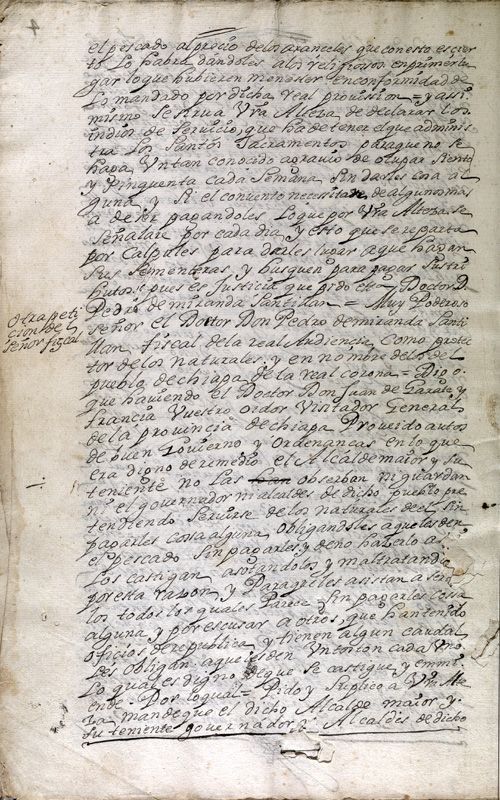 el pescado al precio de los aranceles que con esto escier
to lo habra dandoles a los religiosos en primer lu
gar lo que hubieren menester en conformidad de
lo mandado por dicha real provission = y assi
mismo se sirva Vra Alteza de declarar los
indios de servicio, que ha de tener el que adminis
tra los santos sacramentos para que no se
haga Un tan conocido agravio de ocupar siento
y sinquenta cada semana sin darles cosa al
guna y si el convento necesitare de alguno mas
a de ser pagandoles lo que por Vra Alteza se
señalare por cada dia y esto que se reparta
por Calpules para darles lugar a que hagan
sus sementeras y busquen para pagar sus tri
butos pues es Justicia que pido etta Doctor D.
Pedro de miranda Santillan = Muy Poderoso
Otra peti
cion del
señor fiscal
señor el Doctor Don Pedro de miranda Santi
llan fiscal de la real Audiencia como protec
tor de los naturales y en nombre de los del
pueblo de chiapa de la real corona = Digo
que haviendo el Doctor Don Juan de Garate y
francia Vuestro oidor Visitador General
de la provincia de chiapa Proveido autos
de buen Govierno y Ordenanças en lo que
era digno de remedio el Alcalde maior y su
teniente no las observan ni guardan
ni el governador ni alcaldes de dicho pueblo pre
tendiendo servirse de los naturales de el sin
pagarles cosa alguna obligandoles a que les den
el pescado sin pagarles y de no haserlo assi
los castigan asotandolos y maltratandolos
por esta razon y
los todos los quales sin pagarles cosa
alguna y por escusar a otros que han tenido
oficios de republica y tienen algun caudal
les obligan a que les den Un toston cada Uno
lo qual es digno de que se castigue y enmi
ende. Por lo qual = Pido y suplico a Vra Alte
za mande que el dicho Alcalde maior y
su teniente governador y Alcaldes de dicho